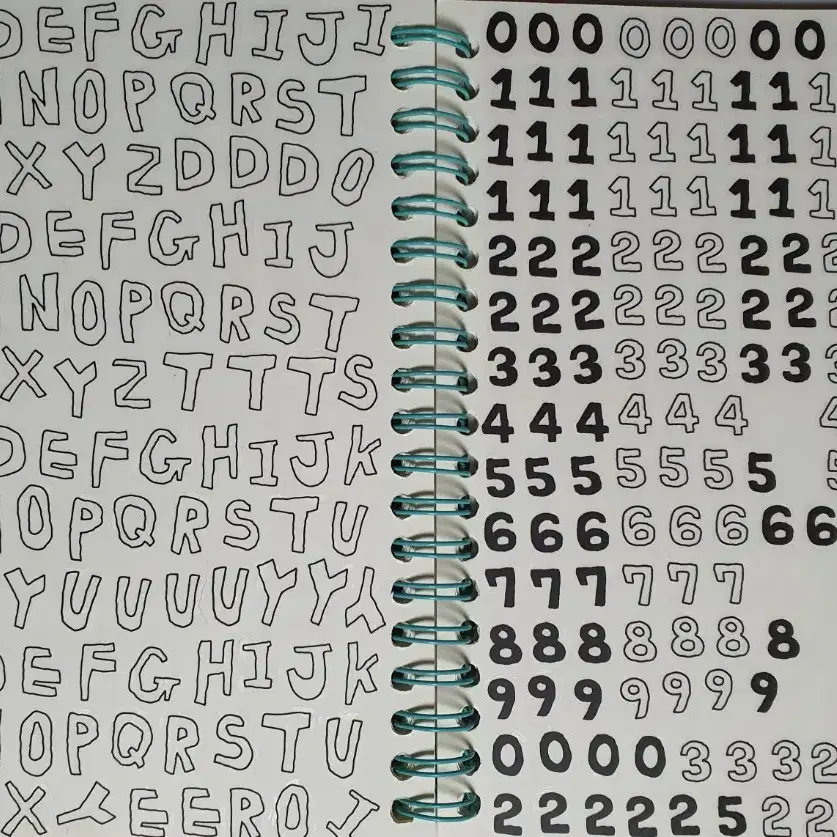 D E F G H I J I
N O P Q R S T
X Y Z D D D O
D E F G H I J
N O P Q R S T
X Y Z T T T S
D E F G H I J k
O P Q R S T U
Y U U U U Y Y Y
D E F G H I J k
O P Q R S T U
X Y E E R O I
0 0 0 0 0 0 0 0
1 1 1 1 1 1 1 1 1
1 1 1 1 1 1 1 1 1
1 1 1 1 1 1 1 1 1
2 2 2 2 2 2 2 2 2
2 2 2 2 2 2 2 2 2
3 3 3 3 3 3 3 3 3
4 4 4 4 4 4 4
5 5 5 5 5 5 5 5
6 6 6 6 6 6 6 6
7 7 7 7 7 7
8 8 8 8 8 8 8
9 9 9 9 9 9 9
0 0 0 0 3 3 3 2
2 2 2 2 2 5 2 2